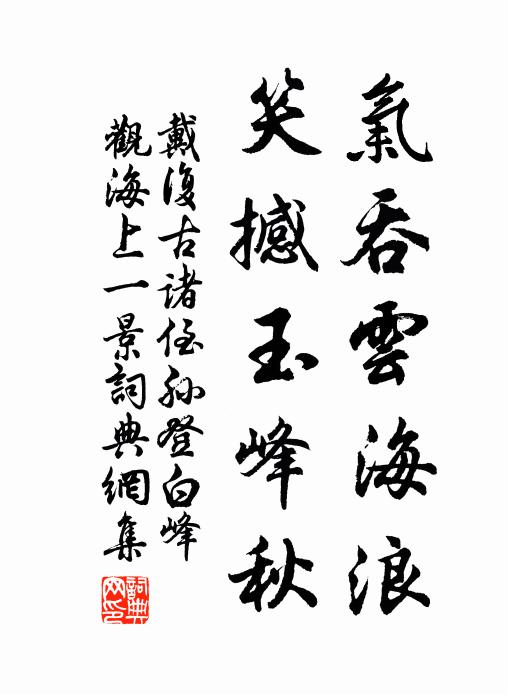 氣吞雲海浪
笑撼玉峰秋
戴復古諸侄孫登白峰
觀海上一景詞典網集
詞典網印